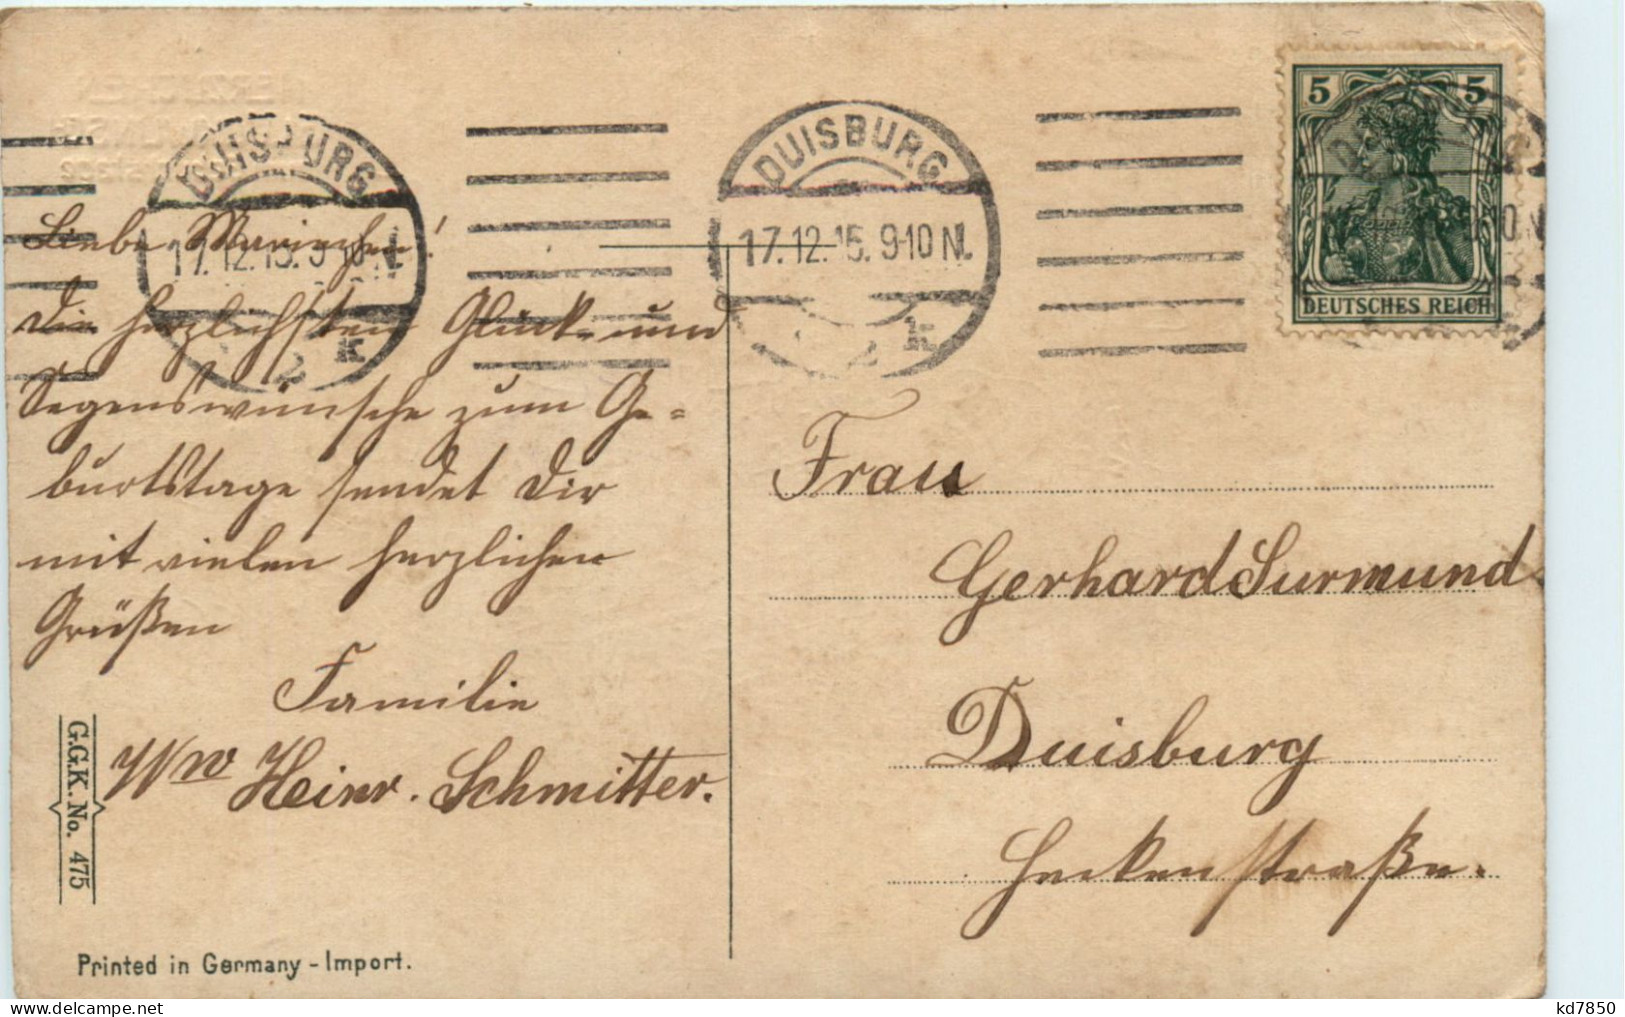 DUISBURG
17.12.15. 9-10 N.
2 k
DUISBURG
17.12.15. 9-10 N.
2 k
5 5
DEUTSCHES REICH
Liebe Mariechen!
Die herzlichsten Glück- und
Segenswünsche zum Ge=
burtstage sendet Dir
mit vielen herzlichen
Grüßen
Familie
Ww Heinr. Schmitter.
Frau
Gerhard Surmund
Duisburg
Heckenstraße.
G.G.K. No. 475
Printed in Germany - Import.
kd7850